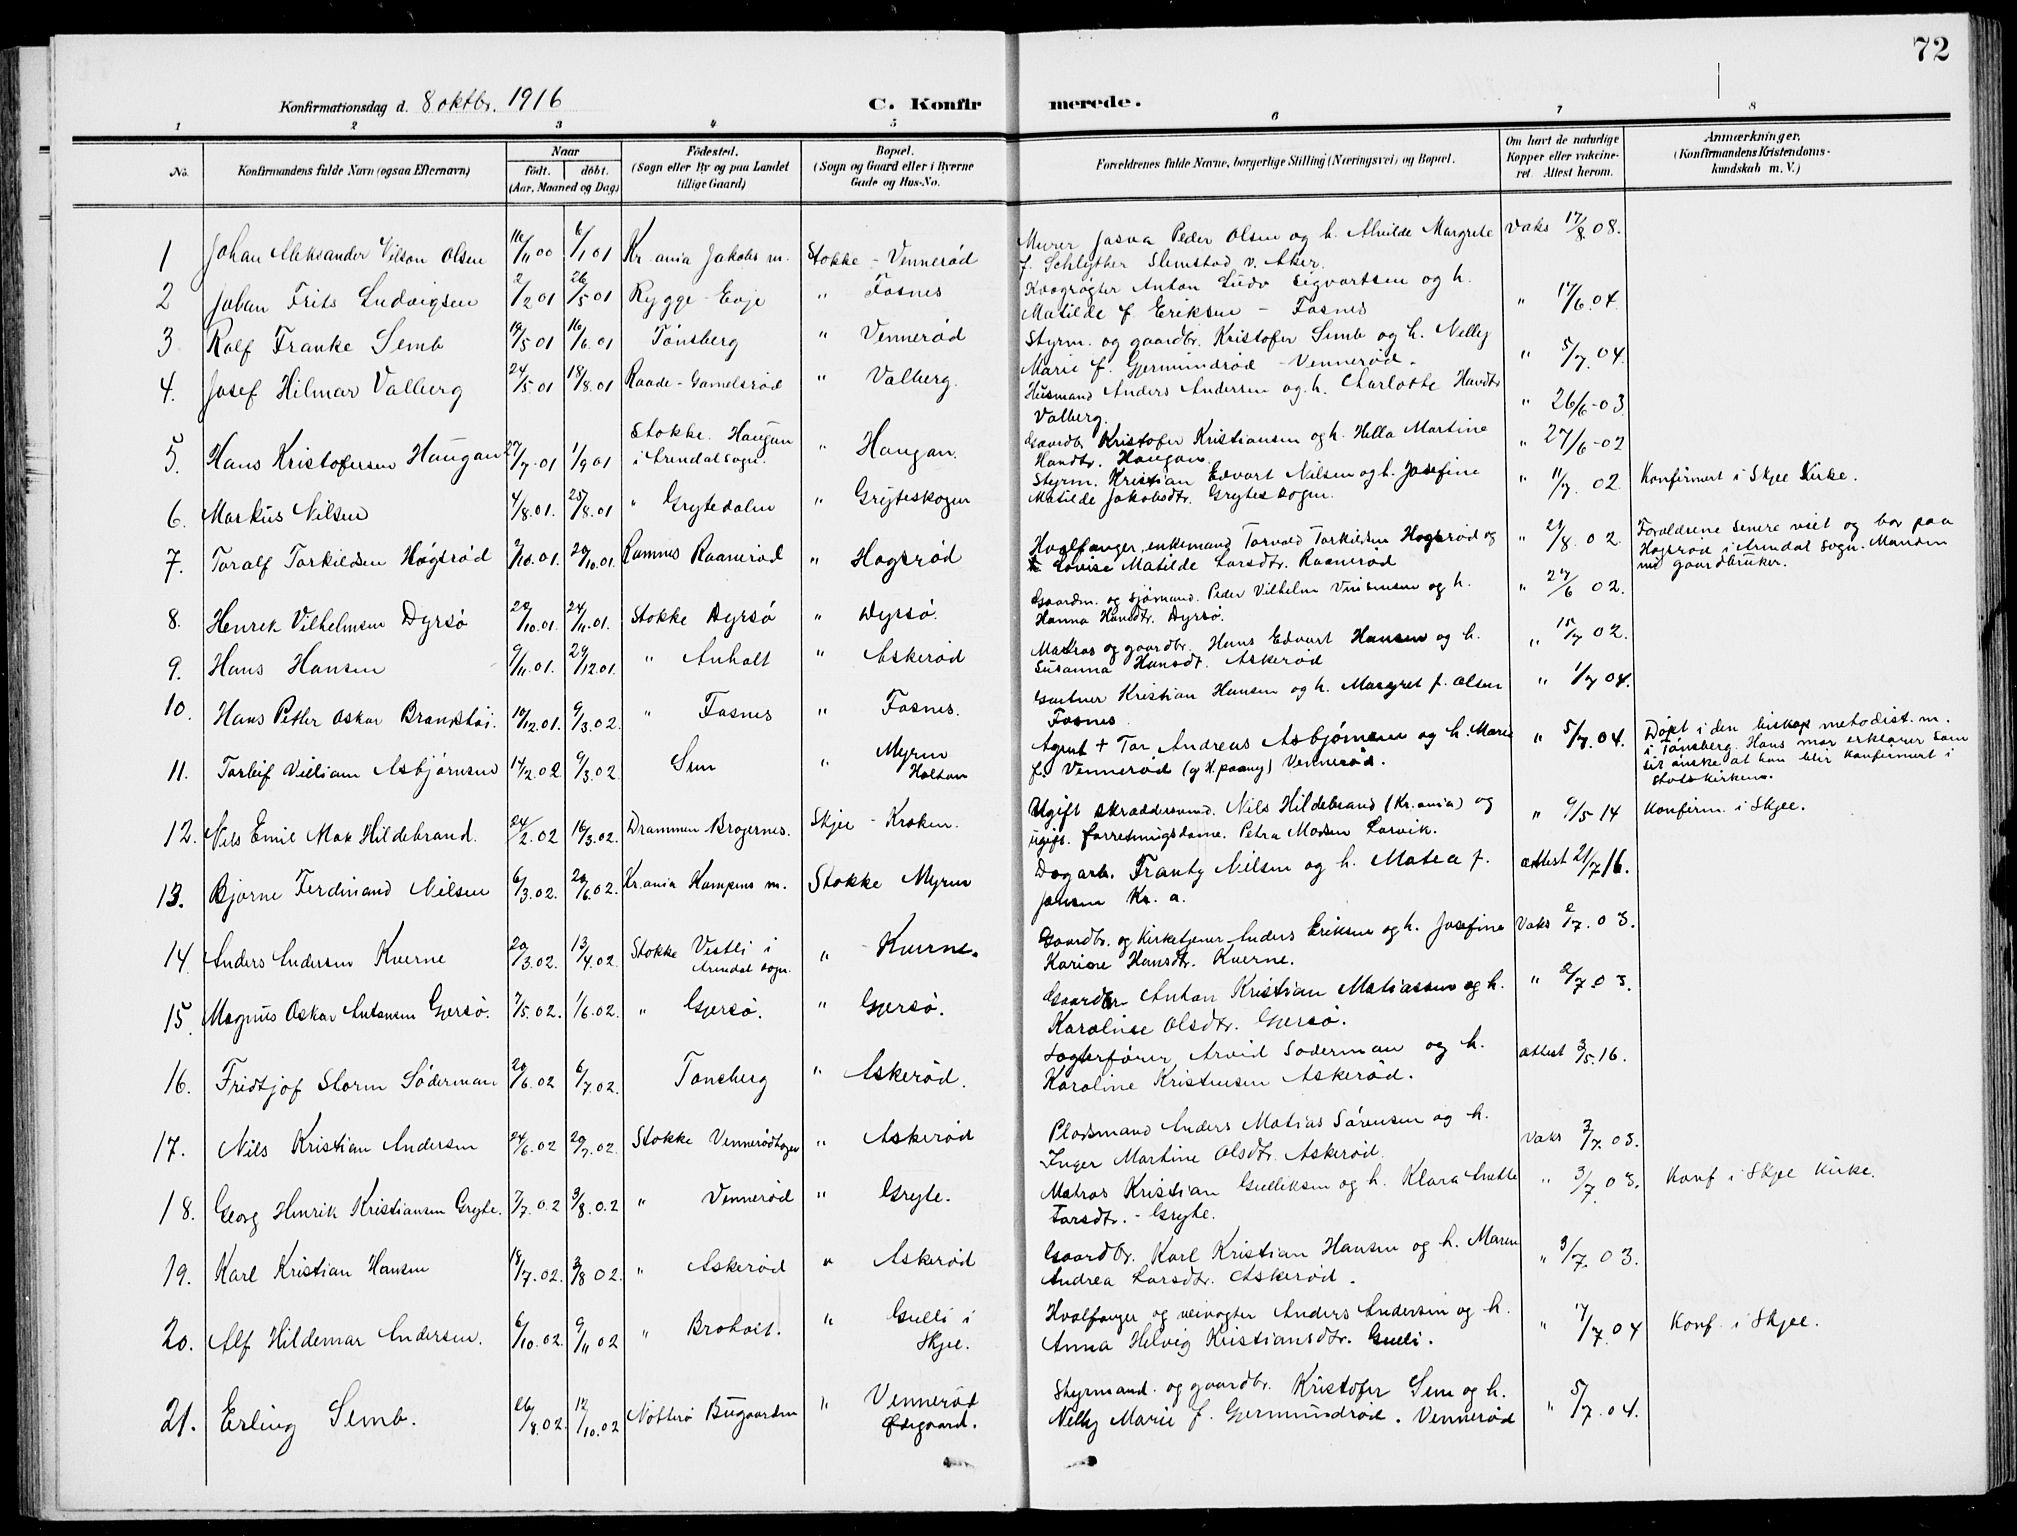 72
Konfirmationsdag d. 8 oktbr. 1916
C. Konfirmerede.
1 2 3 4 5 6 7 8
No.
Konfirmandens fulde Navn (ogsaa Efternavn)
Naar
født. døbt.
(Aar, Maaned og Dag)
Fødested.
(Sogn eller By og paa Landet
tillige Gaard)
Bopæl.
(Sogn og Gaard eller i Byerne
Gade og Hus-No.
Forældrenes fulde Navne, borgerlige Stilling (Næringsvei) og Bopæl.
Om havt de naturlige
Kopper eller vakcine-
ret. Attest herom.
Anmærkninger.
(Konfirmandens Kristendoms-
kundskab m. V.)
1 Johan Aleksander Vilson Olsen 16/11 00 6/1 01 Kr.ania Jakobs m. Stokke - Vennerød Murer Peder Olsen og h. Alvilde Margrete Vaks 17/8. 08.
f. Schlyther Slemstad v. Aker.
2 Johan Frits Ludvigsen 2/2 01 26/5 01 Rygge - Evje " Fosnes Kvægrøgter Anton Ludv Sigvartsen og h.
Matilde f. Eriksen - Fosnes " 17/6. 04.
3 Rolf Franke Semb 19/5 01 16/6. 01 Tønsberg " Vennerød Styrm. og gaardbr. Kristofer Semb og h. Nelly
Marie f. Gjermundrød - Vennerød. " 5/7. 04.
4. Josef Hilmar Valberg 24/5. 01 18/8. 01 Raade - Gamelsrød " Valberg. Husmand Anders Andersen og h. Charlotte Hansdtr
Valberg. " 26/6-03.
5. Hans Kristofersen Haugan 27/7-01 1/9 01 Stokke. Haugan
i Arendal sogn. " Haugan. Gaardbr Kristofer Kristiansen og h. Hella Martine
Hansdtr. Haugan. " 27/6-02
6. Markus Nilsen 4/8. 01. 25/8. 01 " Grytedalen " Gryteskogen Styrm. Kristian Edvart Nilsen og h. Josefine
Matilde Jakobsdtr. Gryteskogen. " 11/7. 02. Konfirmert i Skjee Kirke.
7. Toralf Torkildsen Høgsrød 7/10. 01. 20/10. 01. Ramnes Raanerød " Høgsrød Hvalfanger, enkemand Torvald Torkildsen Høgsrød og
Lovise Matilde Larsdtr. Raanerød " 21/8. 02. Forældrene senere viet og bor paa
Høgsrød i Arendal sogn. Manden
nu gaardbruker.
8. Henrik Vilhelmsen Dyrsø 20/10. 01. 24/11. 01. Stokke Dyrsø " Dyrsø. Gaardm. og sjømand. Peder Vilhelm Vinsensen og h.
Hanna Hansdtr. Dyrsø. " 27/6 02.
9. Hans Hansen 9/11. 01. 29/12 01 " Anholt " Askerød Matros og gaardbr. Hans Edvart Hansen og h.
Susanna Hansdt. Askerød " 15/7 02.
10. Hans Petter Oskar Brandstøi. 10/12 01. 9/3. 02. " Fosnes " Fosnes. Gartner Kristian Hansen og h. Margret f. Olsen
Fosnes " 1/7 04.
11. Torleif William Asbjørnsen 14/2. 02 9/3. 02. Sem " Myren
Holtan Agent + Tor Andreas Asbjørnsen og h. Marie
f. Vennerød Vennerød. " 5/7. 04. Døpt i den biskop. metodist. m.
i Tønsberg. Hans mor erklærer som
sit ønske at han blir konfirmert i
statskirken.
12. Nils Emil Max Hildebrand. 24/2. 02 16/3. 02. Drammen Bragernes. Skjee - Kroken. Ugift skræddersvend. Nils Hildebrand (Kr.ania) og
ugift. forretningsdame. Petra Madsen Larvik. " 9/5 14 Konfirm. i Skjee.
13. Bjarne Ferdinand Nilsen 6/3. 02. 29/6. 02. Kr.ania Kampens m. Stokke Myren Dagarb. Frantz Nilsen og h. Matea f.
Jansen Kr. a. attest 21/7 16.
14. Anders Andersen Kverne 20/3. 02. 13/4. 02. Stokke Vestli i
Arendal sogn. " Kverne. Gaardbr. og Kirketjener Anders Eriksen og h. Josefine
Karine Hansdtr. Kverne. Vaks 2/7. 03.
15. Magnus Oskar Antonsen Gjersø. 7/5. 02. 1/6. 02. " Gjersø. " Gjersø. Gaardbr Anton Kristian Matiassen og h.
Karoline Olsdtr. Gjersø. " 2/7. 03.
16. Fridtjof Storm Söderman 20/6. 02 6/7. 02. Tønsberg " Askerød. Arvid Söderman og h.
Karoline Kristensen Askerød. attest 3/5. 16.
17. Nils Kristian Andersen 24/6. 02 20/7. 02. Stokke Vennerødhagen " Askerød Pladsmand Anders Matias Sørensen og h.
Inger Martine Olsdtr. Askerød. Vaks 3/7. 03.
18. Georg Henrik Kristiansen Gryte. 7/7. 02 3/8. 02 " Vennerød " Gryte. Matros Kristian Gulliksen og h. Klara Anette
Larsdtr. - Gryte. " 3/7. 03. Konf i Skjee Kirke.
19. Karl Kristian Hansen 18/7. 02. 3/8 02. " Askerød " Askerød Gaardbr. Karl Kristian Hansen og h. Maren
Andrea Larsdtr. Askerød. " 3/7. 03.
20. Alf Hildemar Andersen. 6/10. 02. 9/11 02 " Brohoit. " Gulli i
Skjee. Hvalfanger og veivogter Anders Andersen og h.
Anna Helvig Kristiansdtr. Gulli. " 17/7. 04 Konf. i Skjee.
21. Erling Semb. 26/8. 02. 12/10. 02 Nøtterø Bugaarden " Vennerød
Ødegaard. Styrmand. og gaardbr. Kristofer Sem og h.
Nelly Marie f. Gjermundrød. Vennerød " 5/7. 04.